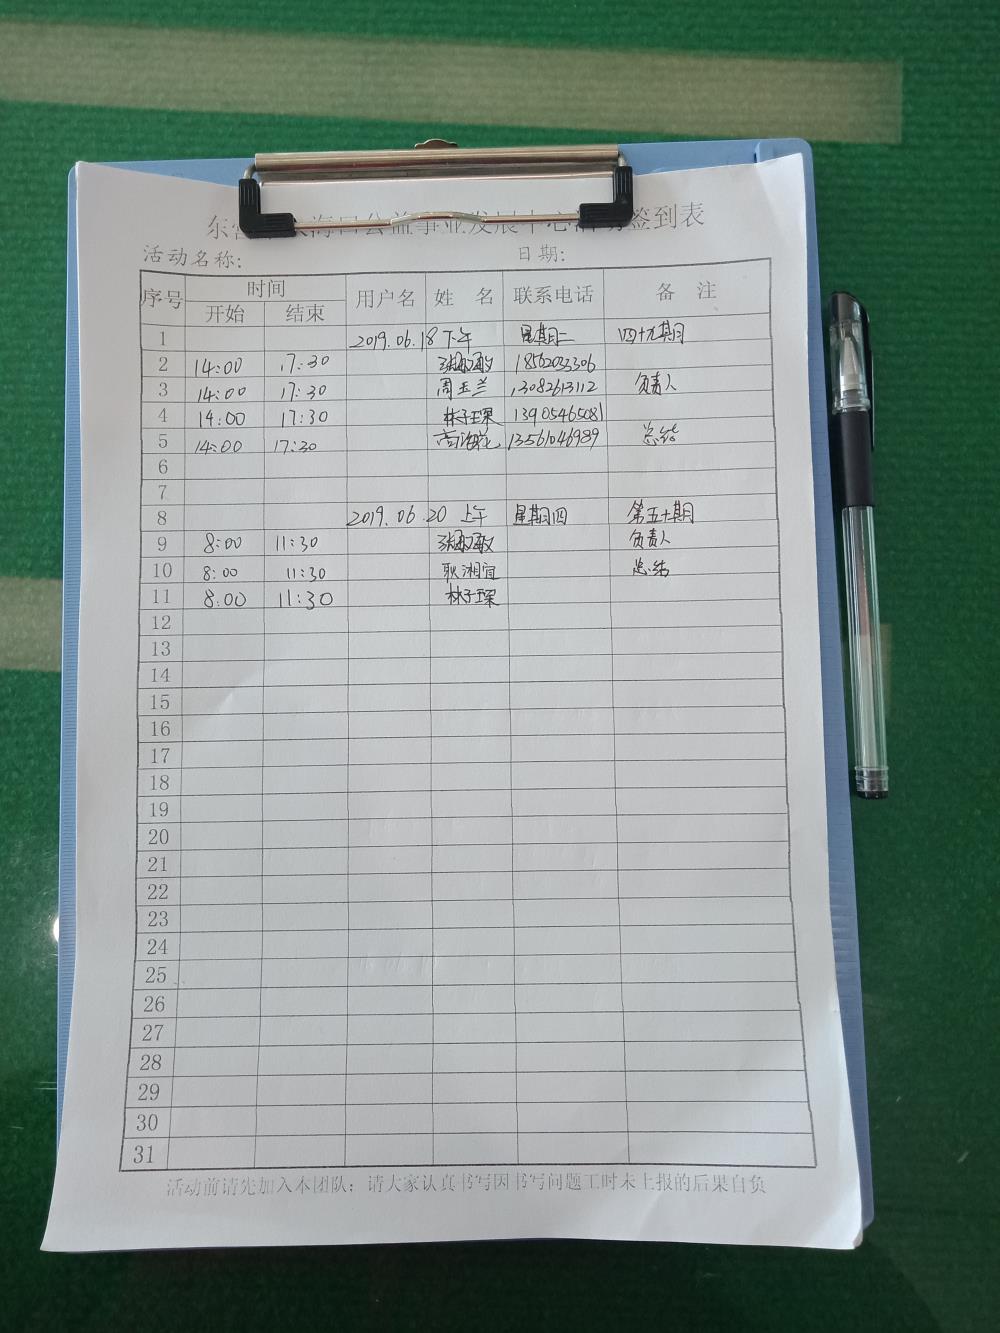 东营 海 公益事业发展中心活 签到表
活动名称: 日期:
序号 时间 用户名 姓 名 联系电话 备 注
开始 结束
1 2019.06.18 下午 星期二 四十九期
2 14:00 17:30 18562033306
3 14:00 17:30 周玉兰 13082613112 负责人
4 14:00 17:30 林子琛 13905465081
5 14:00 17:30 高海花 13561046989 总结
6
7
8 2019.06.20 上午 星期四 第五十期
9 8:00 11:30 负责人
10 8:00 11:30 耿湘宜 总结
11 8:00 11:30 林子琛
12
13
14
15
16
17
18
19
20
21
22
23
24
25
26
27
28
29
30
31
活动前请先加入本团队；请大家认真书写因书写问题工时未上报的后果自负